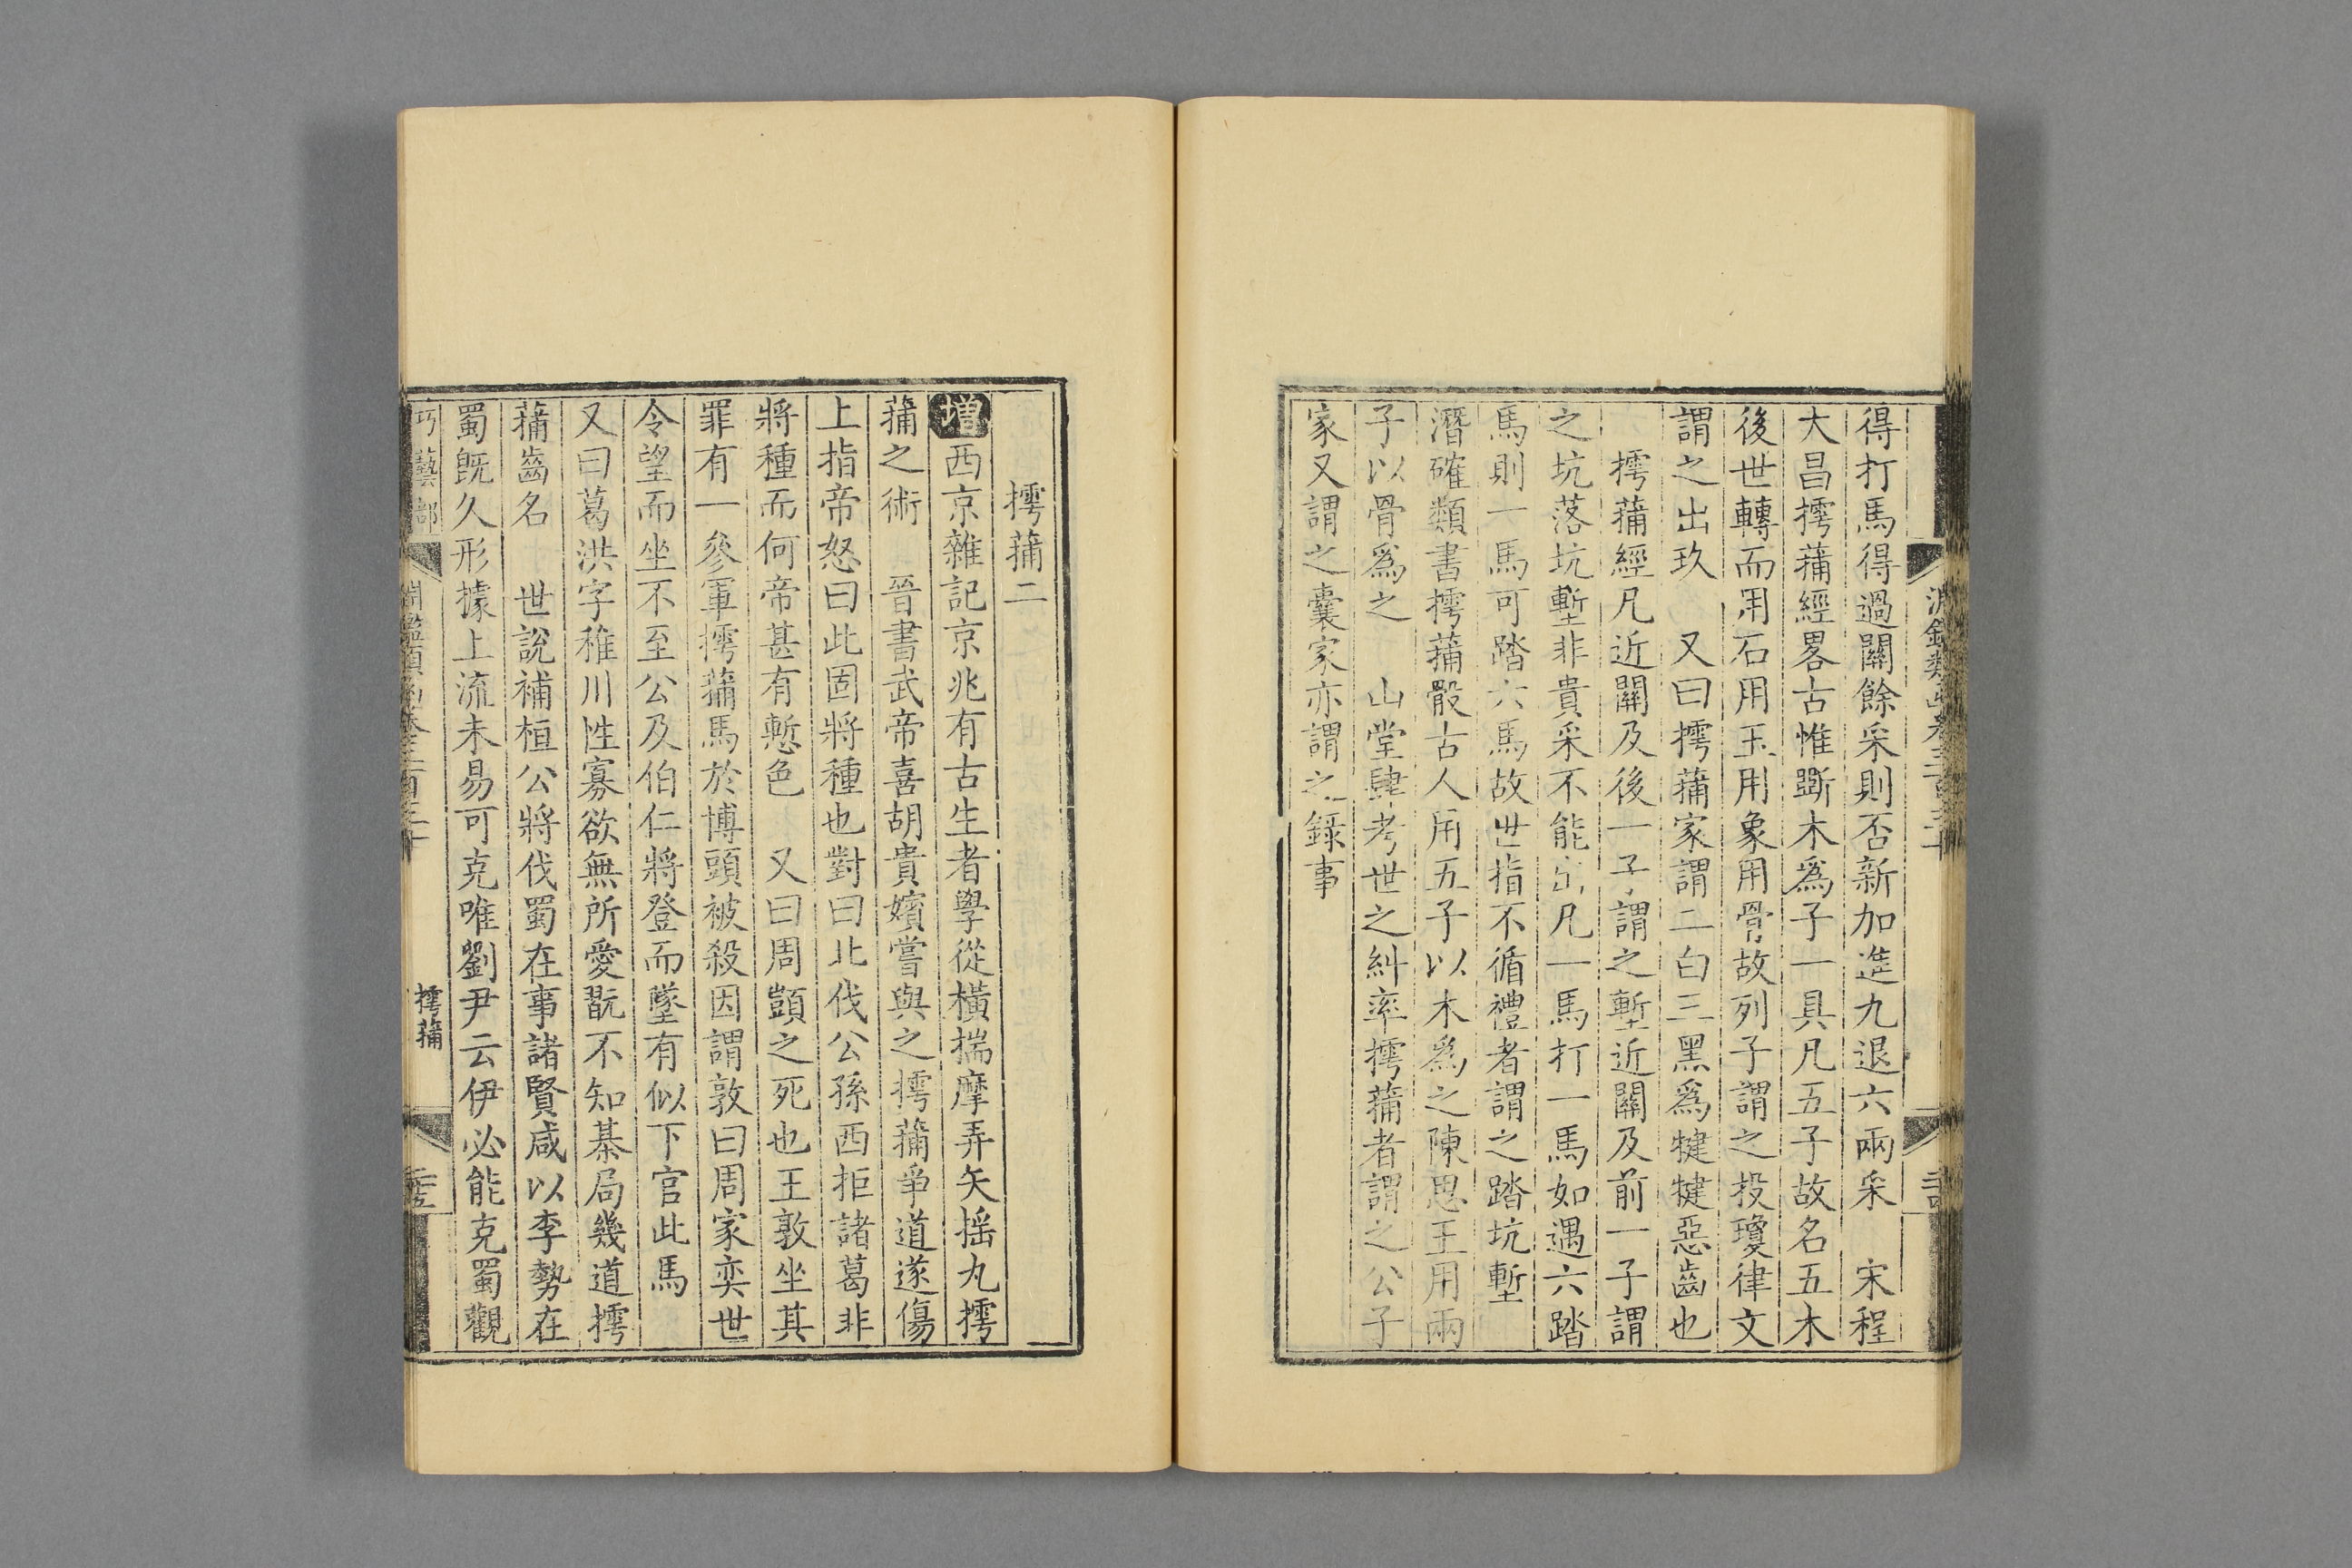 得打馬得過關餘采則否新加進九退六兩采　宋程
大昌摴蒱經畧古惟斲木爲子一具凡五子故名五木
後世轉而用石用玉用象用骨故列子謂之投瓊律文
謂之出玖　又曰摴蒱家謂二白三黑爲犍犍惡齒也
摴蒱經凡近關及後一子謂之塹近關及前一子謂
之坑落坑塹非貴采不能出凡一馬打一馬如遇六踏
馬則一馬可踏六馬故世指不循禮者謂之踏坑塹
潛確類書摴蒱骰古人用五子以木爲之陳思王用兩
子以骨爲之　山堂肆考世之糾率摴蒱者謂之公子
家又謂之囊家亦謂之錄事
摴蒱二
增西京雜記京兆有古生者學從橫揣摩弄矢搖丸摴
蒱之術　晉書武帝喜胡貴嬪嘗與之摴蒱爭道遂傷
上指帝怒曰此固將種也對曰北伐公孫西拒諸葛非
將種而何帝甚有慙色　又曰周顗之死也王敦坐其
罪有一參軍摴蒱馬於博頭被殺因謂敦曰周家奕世
令望而坐不至公及伯仁將登而墜有似下官此馬
又曰葛洪字稚川性寡欲無所愛翫不知棊局幾道摴
蒱齒名　世說補桓公將伐蜀在事諸賢咸以李勢在
蜀旣久形據上流未易可克唯劉尹云伊必能克蜀觀
巧藝部
摴蒱